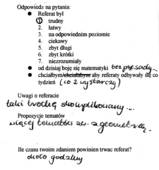 Odpowiedz na pytania:
● Referat był
1) trudny
2. łatwy
3. na odpowiednim poziomie
4. ciekawy
5. zbyt długi
6. zbyt krótki
7. niezrozumiały
● od dzisiaj boję się matematyki bez przesady...
● chciałbym/chciałabym aby referaty odbywały się co tydzień (co 2 wystarczy)
Uwagi o referacie
taki trochę skomplikowany...
Propozycje tematów
więcej tematów z geometrii...
Ile czasu twoim zdaniem powinien trwać referat?
około godziny